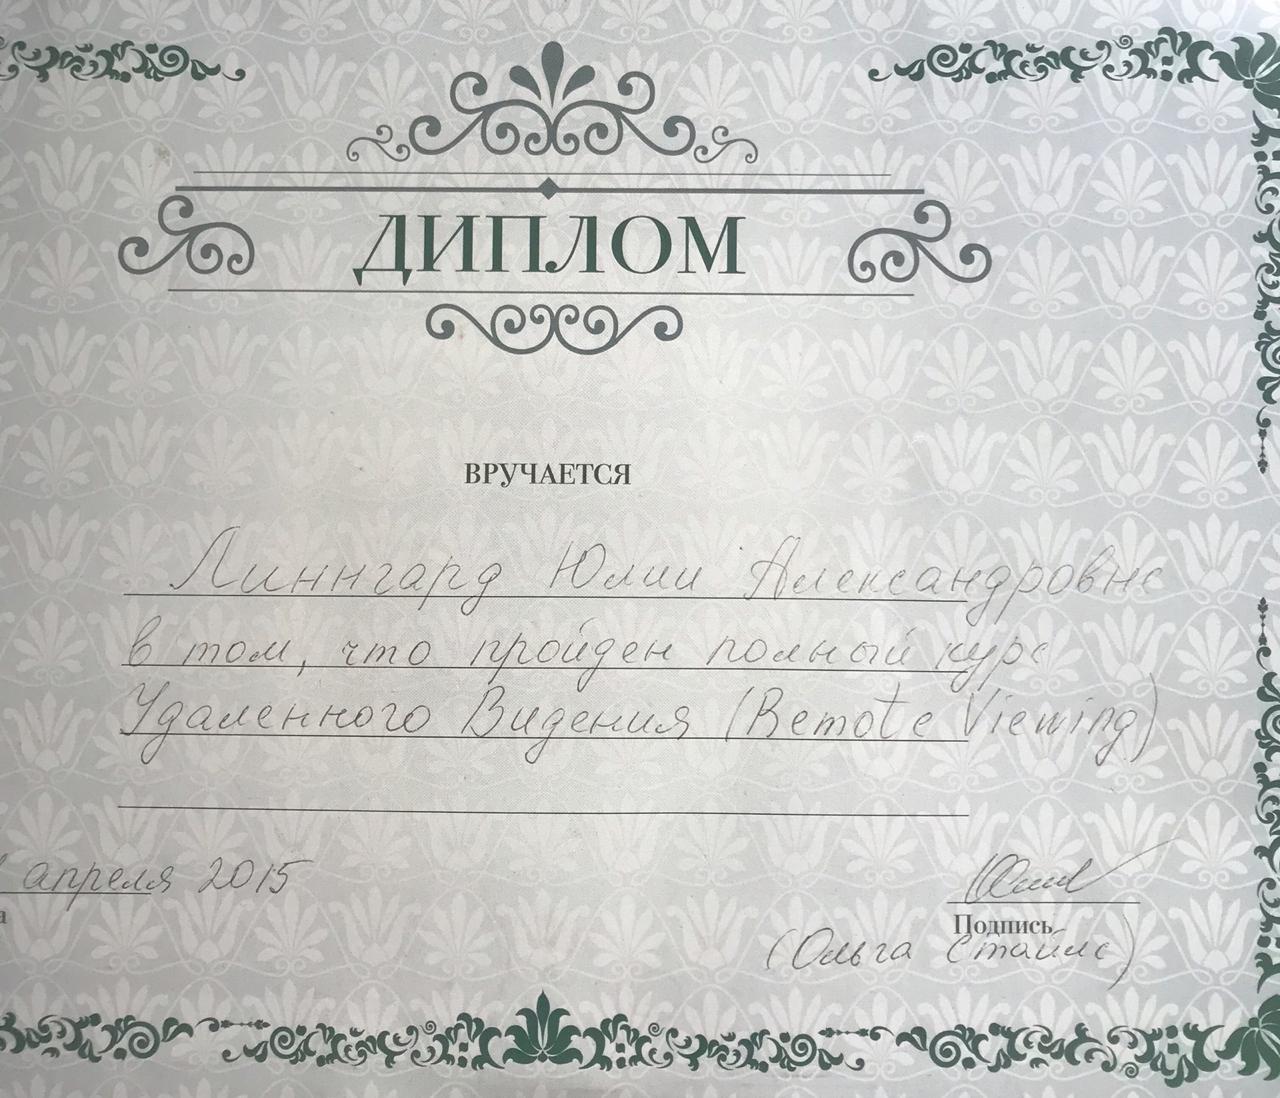 ДИПЛОМ
ВРУЧАЕТСЯ
Линнгард Юлии Александровне
в том, что пройден полный курс
Удаленного Видения (Remote Viewing)
апреля 2015
Подпись
(Ольга Стайлс)